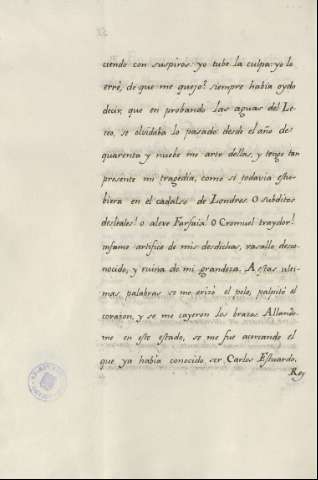 ciendo con suspiros: yo tube la culpa: yo lo
erré, de que me quejo? siempre habia oydo
decir, que en probando las aguas del Le-
teo, se olvidaba lo pasado: desde el año de
quarenta y nuebe me arte dellas, y tengo tan
presente mi tragedia, como si todavia estu-
biera en el cadalso de Londres. O subditos
desleales! o aleve Farfaix! O Cromuel traydor!
infame artifice de mis desdichas, vasallo desco-
nocido, y ruina de mi grandeza. A estas ulti-
mas palabras se me erizó el pelo, palpitó el
corazon, y se me cayeron los brazos. Allando-
me en este estado, se me fue acercando el
que ya habia conocido ser Carlos Estuardo,
Rey